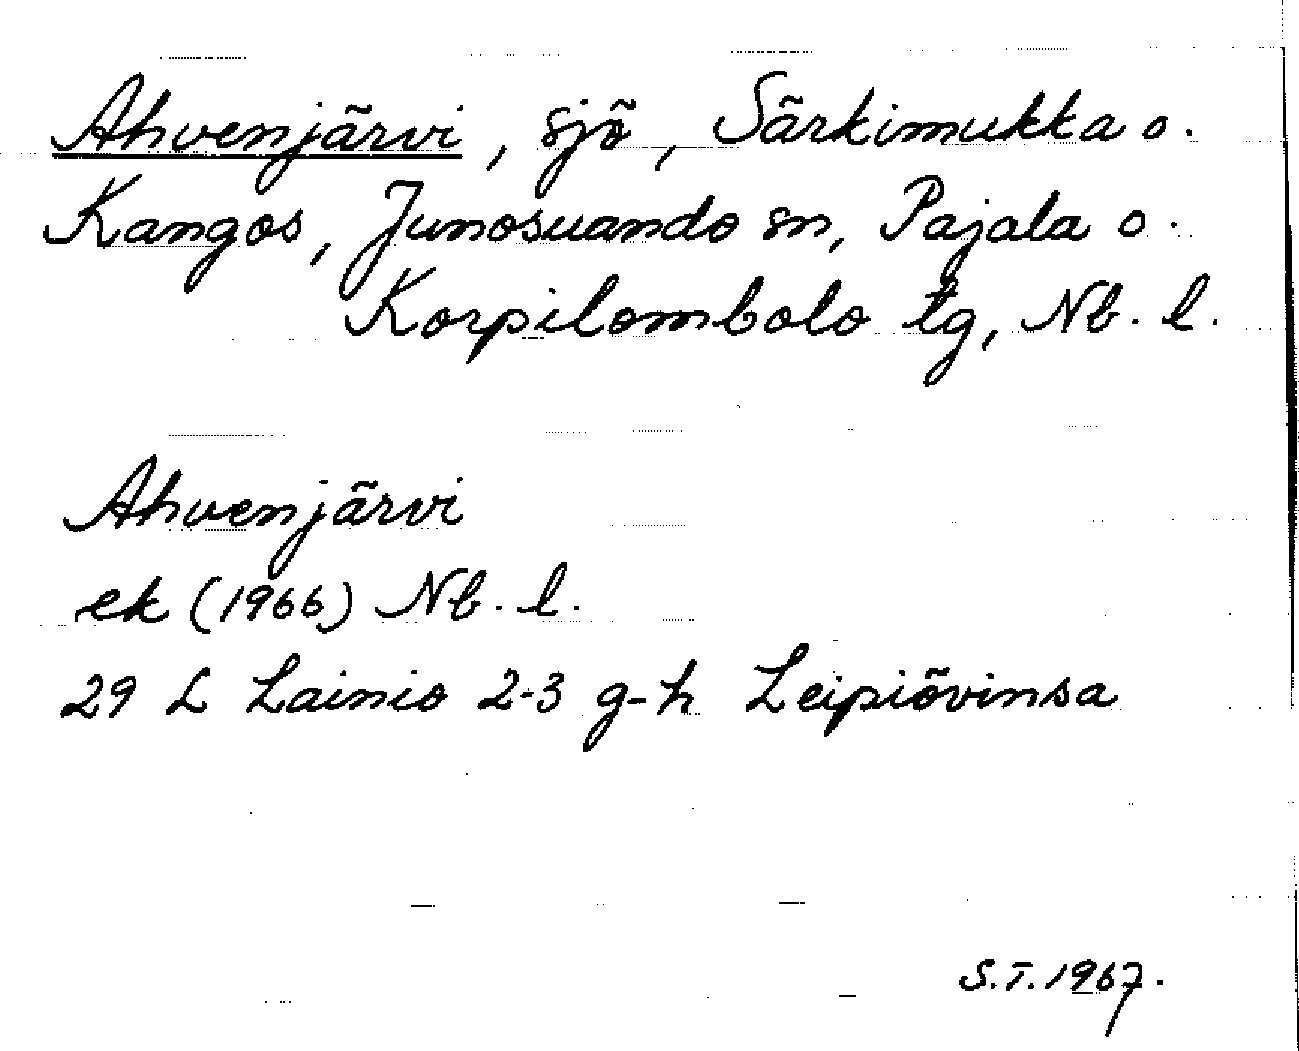 Ahvenjärvi, sjö, Särkimukka o.
Kangos, Junosuando sn, Pajala o.
Korpilombolo tg, Nb. l.
Ahvenjärvi
ek (1966) Nb. l.
29 L Lainio 2-3 g-h Leipiövinsa
S.T. 1967.